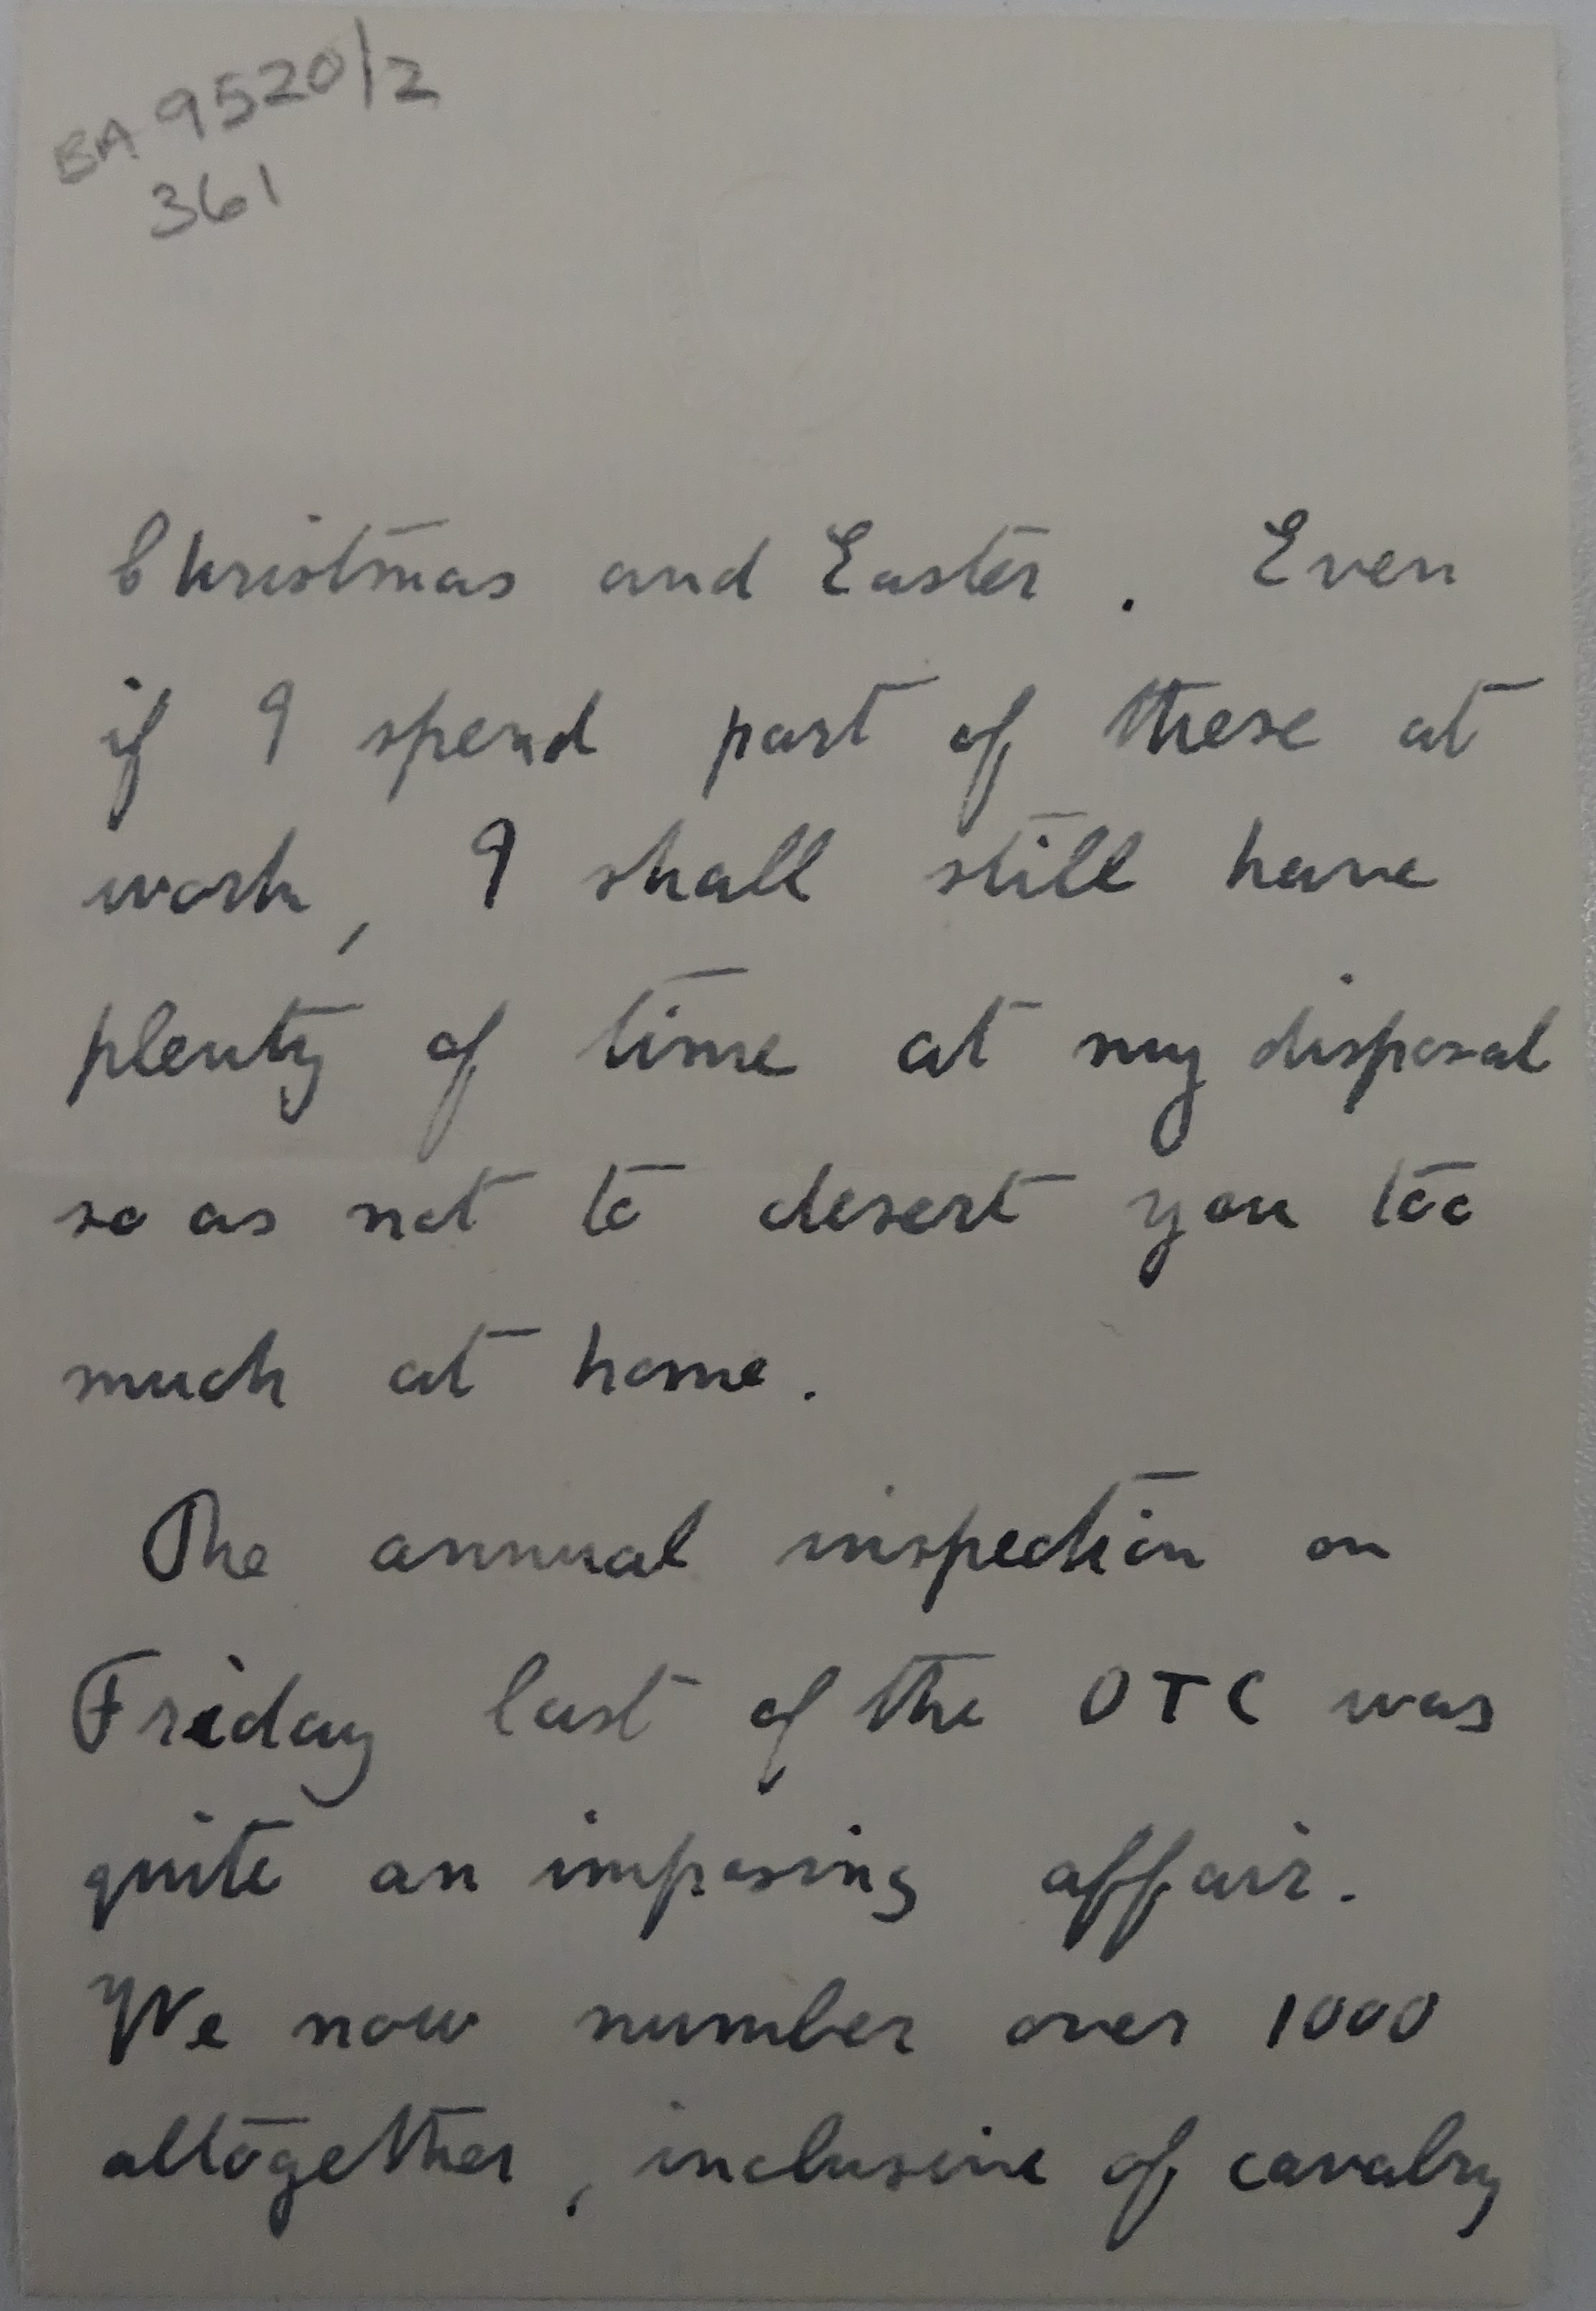 BA 9520/2
361
Christmas and Easter. Even
if I spend part of these at
work, I shall still have
plenty of time at my disposal
so as not to desert you too
much at home.
The annual inspection on
Friday last of the OTC was
quite an imposing affair.
We now number over 1000
altogether, inclusive of cavalry